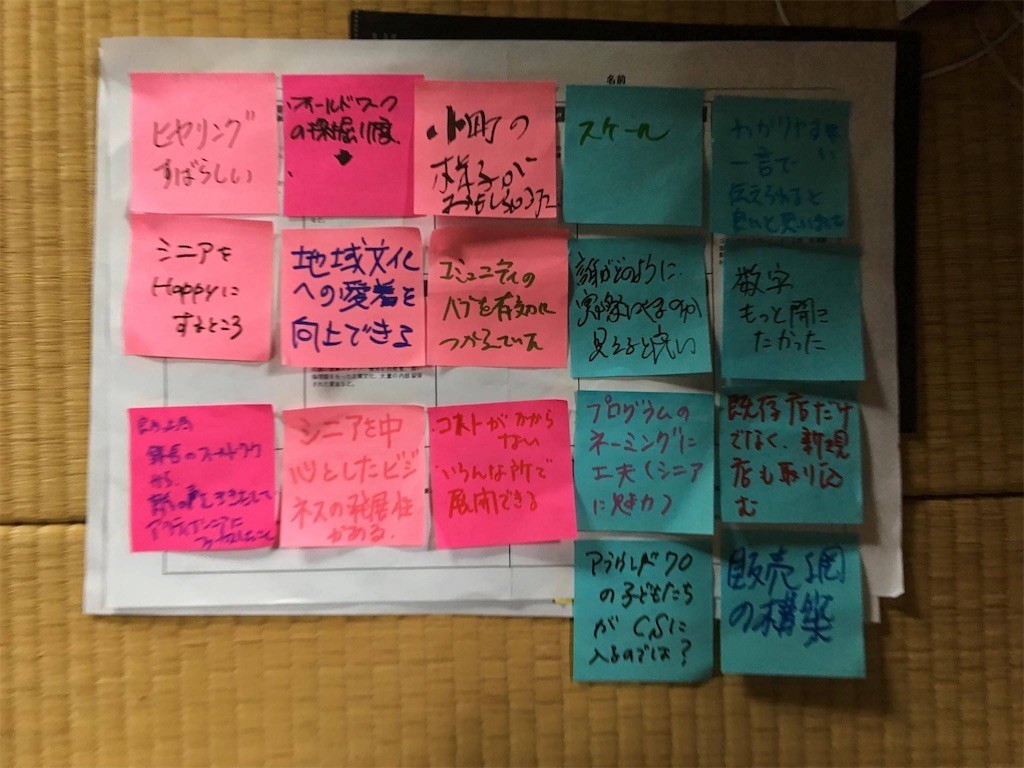 名前
ヒヤリング
すばらしい
フィールドワーク
の深堀り度
小町の
様子が
おもしろかった
スケール
わかりやすい
一言で
伝えられると
良いと思いました
シニアを
Happyに
するところ
地域文化
への愛着を
向上できる
コミュニティの
ハブを有効に
つかっていた
誰がどのように
実際にやるのか
見えると良い
数字
もっと聞き
たかった
から
シニアを中
心としたビジ
ネスの発展性
がある.
コストがかから
ない
いろんな所で
展開できる
プログラムの
ネーミングに
工夫(シニア
に魅力)
既存店だけ
でなく、新規
店も取り込
む
アラウンド70
の子どもたち
がCSに
入るのでは?
販売網
の構築